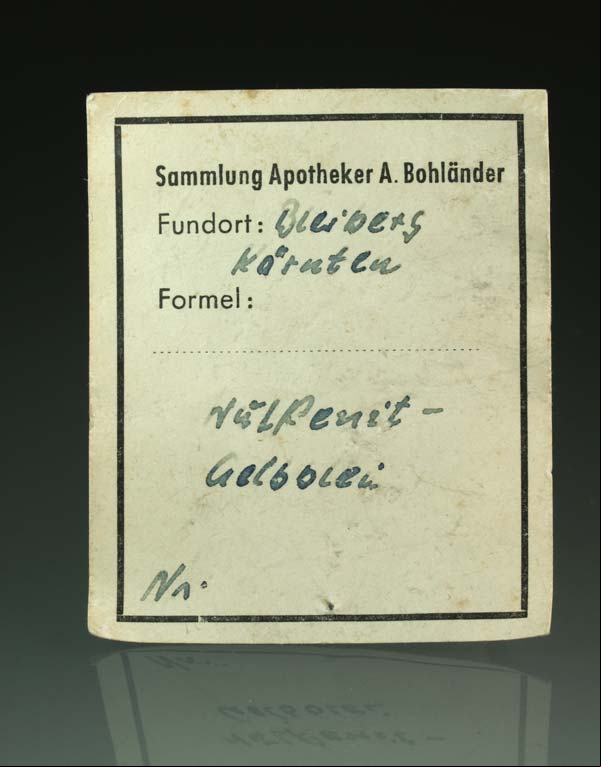 Sammlung Apotheker A. Bohländer
Fundort: Bleiberg
Kärnten
Formel:
Wulfenit-
Gelbblei
Nr.